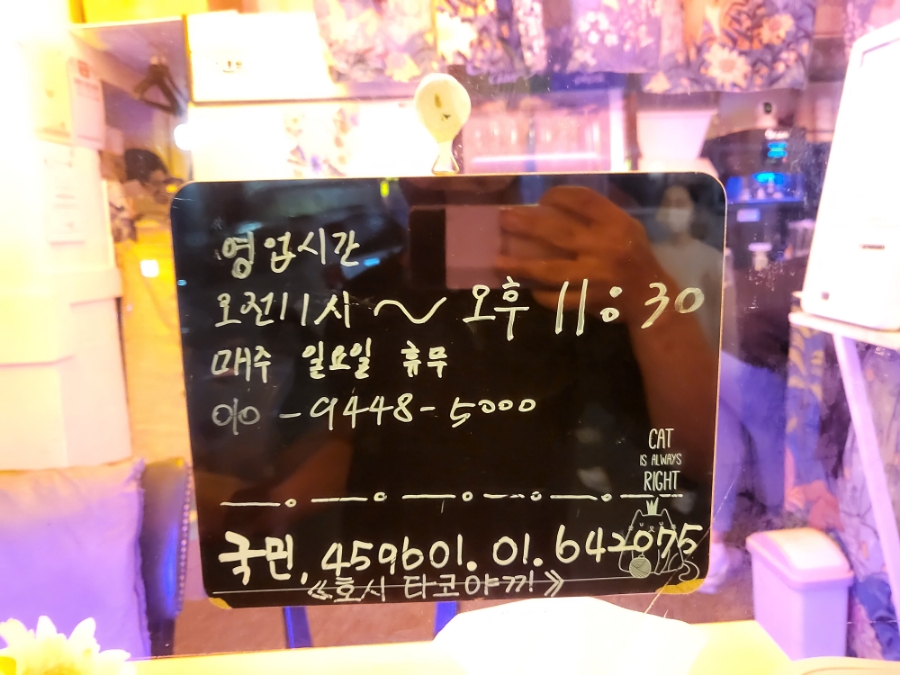 영업시간
오전11시 ~ 오후 11:30
매주 일요일 휴무
010-9448-5000
CAT
IS ALWAYS
RIGHT
국민, 459601. 01. 642075
《호시 타코야끼!》